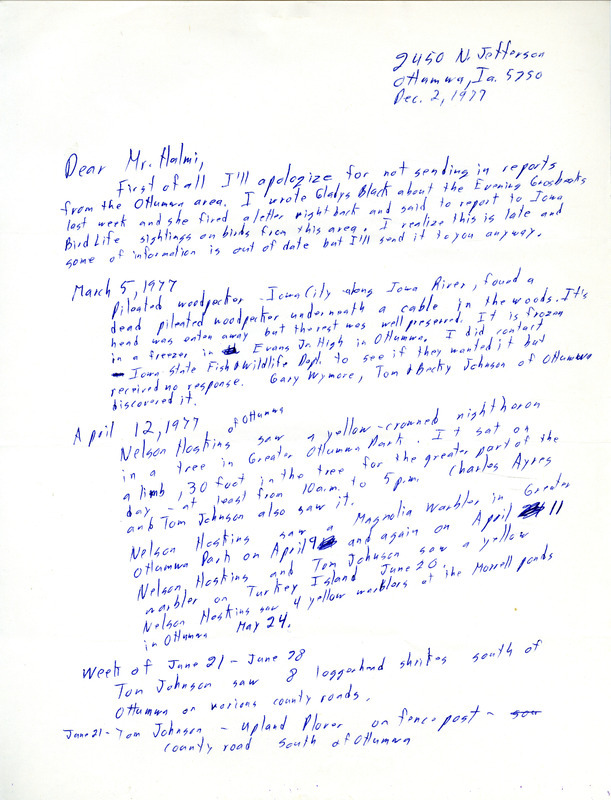 2450 N. Jefferson
Ottumwa, Ia. 5250
Dec. 2, 1977
Dear Mr. Halmi,
First of all I'll apologize for not sending in reports
from the Ottumwa area. I wrote Gladys Black about the Evening Grosbeaks
last week and she fired a letter right back and said to report to Iowa
Bird Life sightings on birds from this area. I realize this is late and
some of information is out of date but I'll send it to you anyway.
March 5, 1977
Pileated woodpecker - Iowa City - along Iowa River, found a
dead pileated woodpecker underneath a cable in the woods. It's
head was eaten away but the rest was well preserved. It is frozen
in a freezer in Evans Jr. High in Ottumwa. I did contact
Iowa State Fish & Wildlife Dept. to see if they wanted it but
received no response. Gary Wymore, Tom & Becky Johnson of Ottumwa
discovered it.
April 12, 1977
Nelson Hoskins of Ottumwa saw a yellow-crowned night heron
in a tree in Greater Ottumwa Park. It sat on
a limb, 30 foot in the tree for the greater part of the
day - at least from 10 a.m. to 5 p.m. Charles Ayres
and Tom Johnson also saw it.
Nelson Hoskins saw a Magnolia Warbler in Greater
Ottumwa Park on April 9 and again on April 11
Nelson Hoskins and Tom Johnson saw a yellow
warbler on Turkey Island June 20.
Nelson Hoskins saw 4 yellow warblers at the Morrell ponds
in Ottumwa May 24.
Week of June 21 - June 28
Tom Johnson saw 8 loggerhead shrikes south of
Ottumwa on various county roads.
June 21 - Tom Johnson - Upland Plover on fence post - sou
county road south of Ottumwa